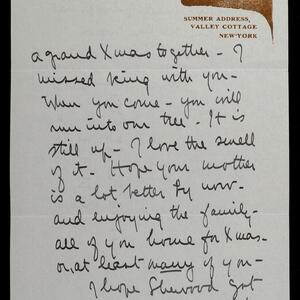 SUMMER ADDRESS,
VALLEY COTTAGE
NEW YORK
a grand Xmas together - I
missed being with you -
When you come - you will
run into our tree. It is
still up - I love the smell
of it - Hope your mother
is a lot better by now -
and enjoying the family -
all of you home for Xmas -
or, at least many of you -
I hope Sherwood got